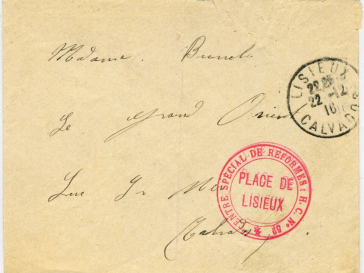 Madame Brunel
Le Grand Orient
Luc Sr Mer
Calvados
LISIEUX
22 -12
16
CALVADOS
CENTRE SPECIAL DE REFORMES
PLACE DE
LISIEUX